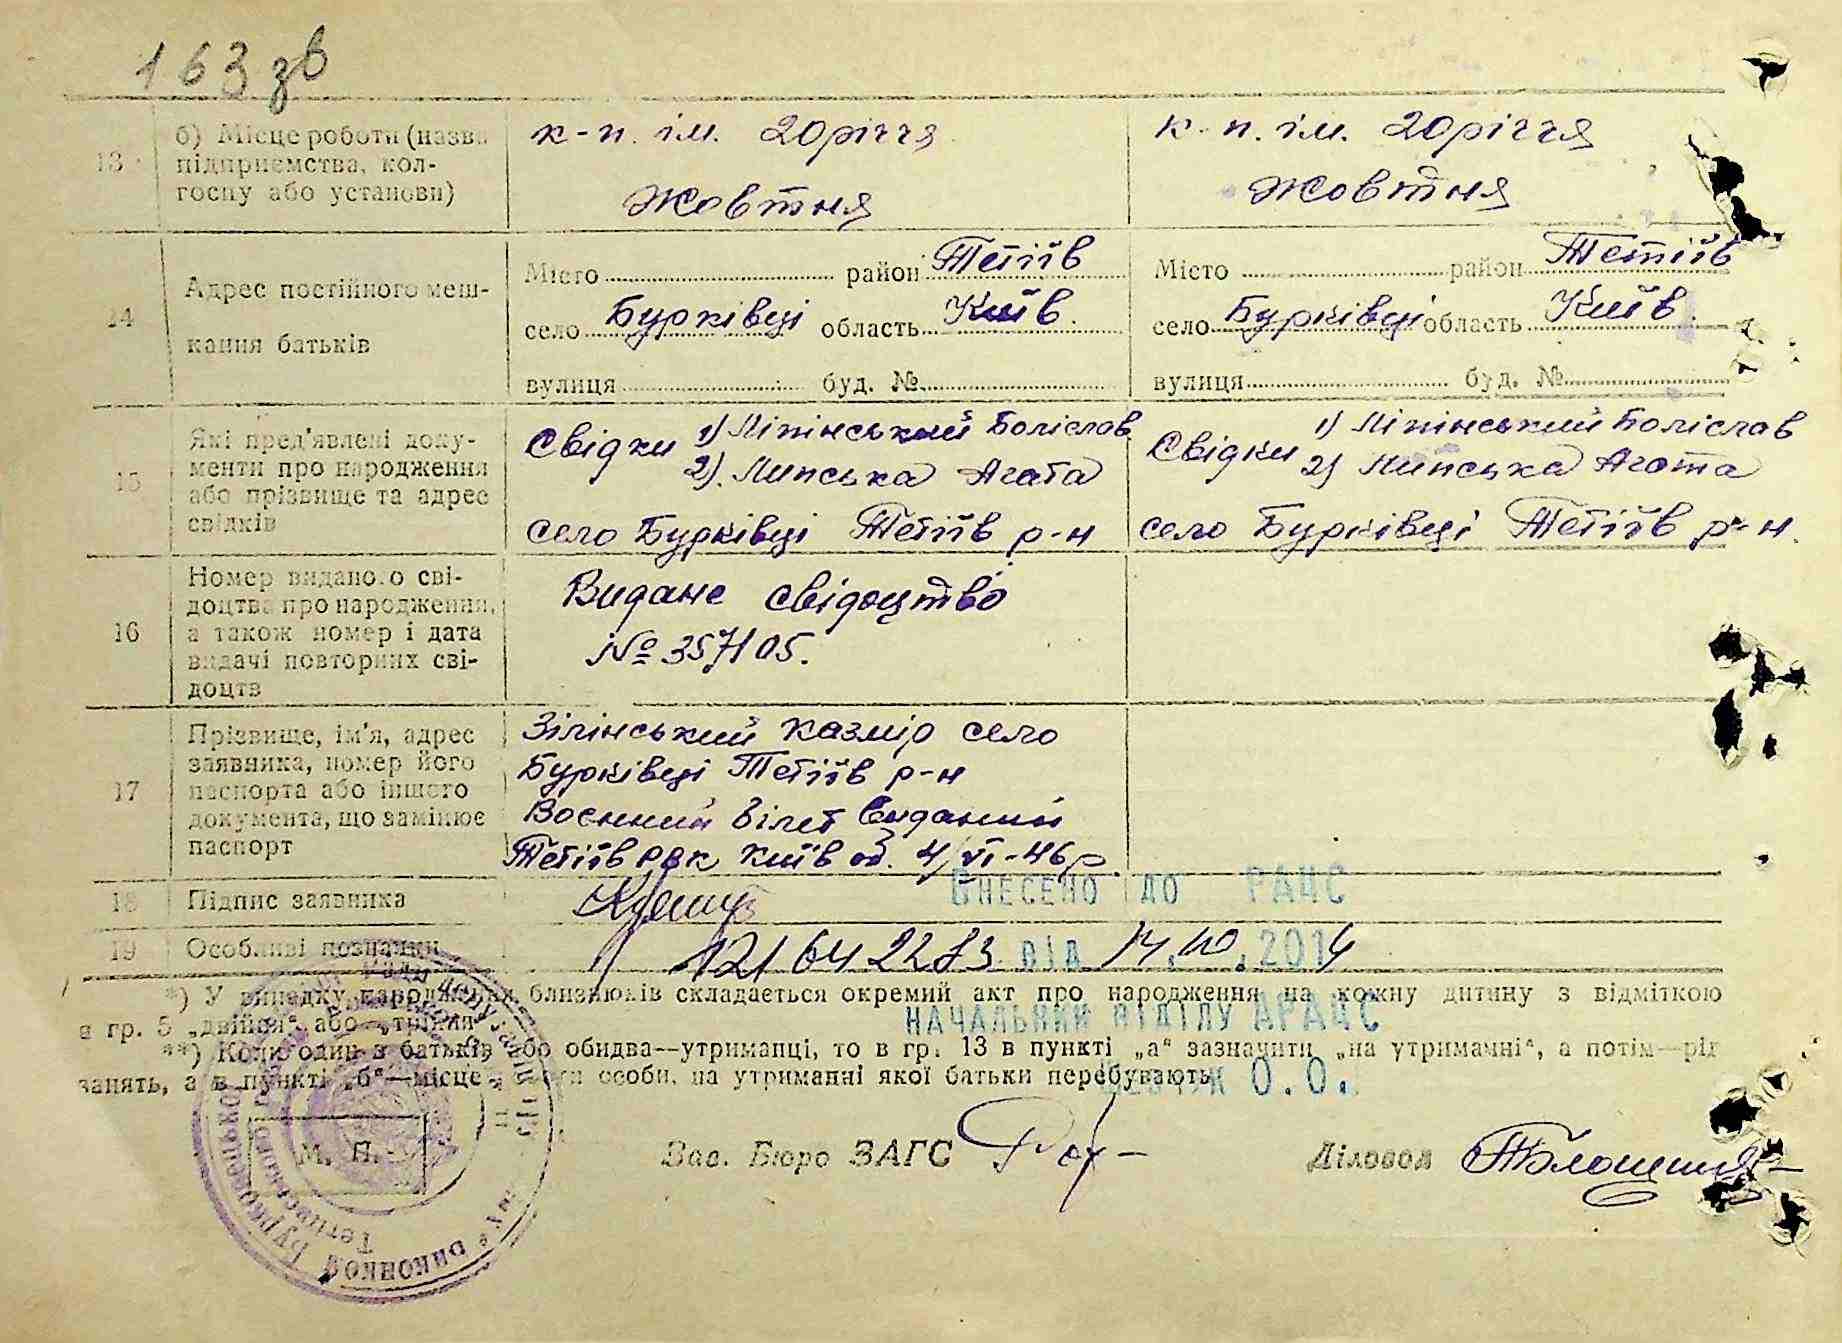 163 зв
13
б) Місце роботи (назва підприємства, колгоспу або установи)
к-п. ім. 20річчя
Жовтня
к-п. ім. 20річчя
Жовтня
14
Адрес постійного мешкання батьків
Місто район Тетіїв
село Бурківці область Київ.
вулиця буд. №
Місто район Тетіїв
село Бурківці область Київ.
вулиця буд. №
15
Які пред'явлені документи про народження
або прізвище та адрес
свідків
Свідки 1) Ліпінський Болїслав
2). Липська Агата
село Бурківці Тетіїв р-н
Свідки 1) Ліпінський Болїслав
2) Липська Агата
село Бурківці Тетіїв р-н.
16
Номер виданого свідоцтва про народження,
а також номер і дата
видачі повторних свідоцтв
Видане свідоцтво
№ 357105.
17
Прізвище, ім'я, адрес
заявника, номер його
паспорта або іншого
документа, що замінює
паспорт
Зілінський Казмір село
Бурківці Тетіїв р-н
Воєнний білет виданий
Тетіїв рвк Київ об. 4/VI-46 р
18
Підпис заявника
Внесено до РАЦС
19
Особливі позначки
121642283 від 14.10.2014
*) У випадку народження близнюків складається окремий акт про народження на кожну дитину з відміткою
в гр. 5 „двійня“ або „трійня“
НАЧАЛЬНИК ВІДДІЛУ ДРАЦС
**) Коли один з батьків або обидва—утриманці, то в гр. 13 в пункті „а“ зазначити „на утриманні“, а потім—рід
занять, а в пункті „б“—місце роботи особи, на утриманні якої батьки перебувають
О.О.
М. П.
Зав. Бюро ЗАГС
Діловод